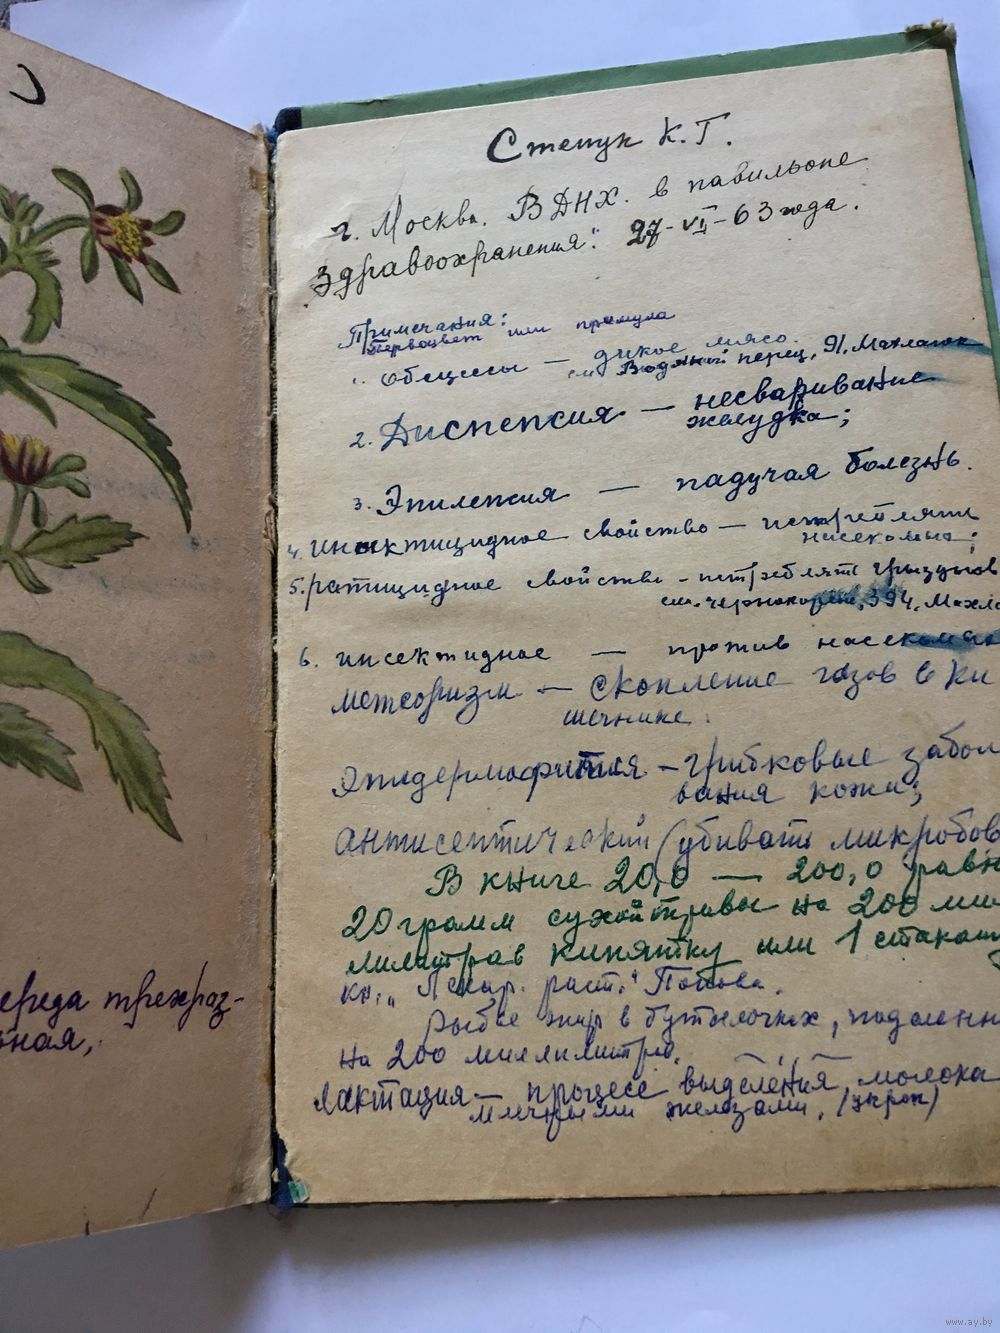 Степук К.Г.
г. Москва. ВДНХ. в павильоне
"Здравоохранения". 27-VI-63 года.
Примечания:
Первоцвет или примула
1. абсцессы — дикое мясо.
см Водяной перец, 91, Махлаюк
2. Диспепсия — несваривание
желудка;
3. Эпилепсия — падучая болезнь.
4. инсектицидное свойство — истреблять
насекомых;
5. ратицидное свойство - истреблять грызунов
см. чернокорень, 394, Махла
6. инсектидное — против насекомых
метеоризм — скопление газов в ки
шечнике.
эпидермофития — грибковые забол
вания кожи;
антисептический (убивать микробов
В книге 20,0 — 200,0 равн
20 грамм сухой травы на 200 мил
лилитров кипятку или 1 стакану
кн. „Лекар. раст." Попова.
Рыбье жир в бутылочках, поделенн
на 200 миллилитров.
Лактация — процесс выделения молока
млечными железами, (укроп)
череда трехраз-
ьная,
www.ay.by